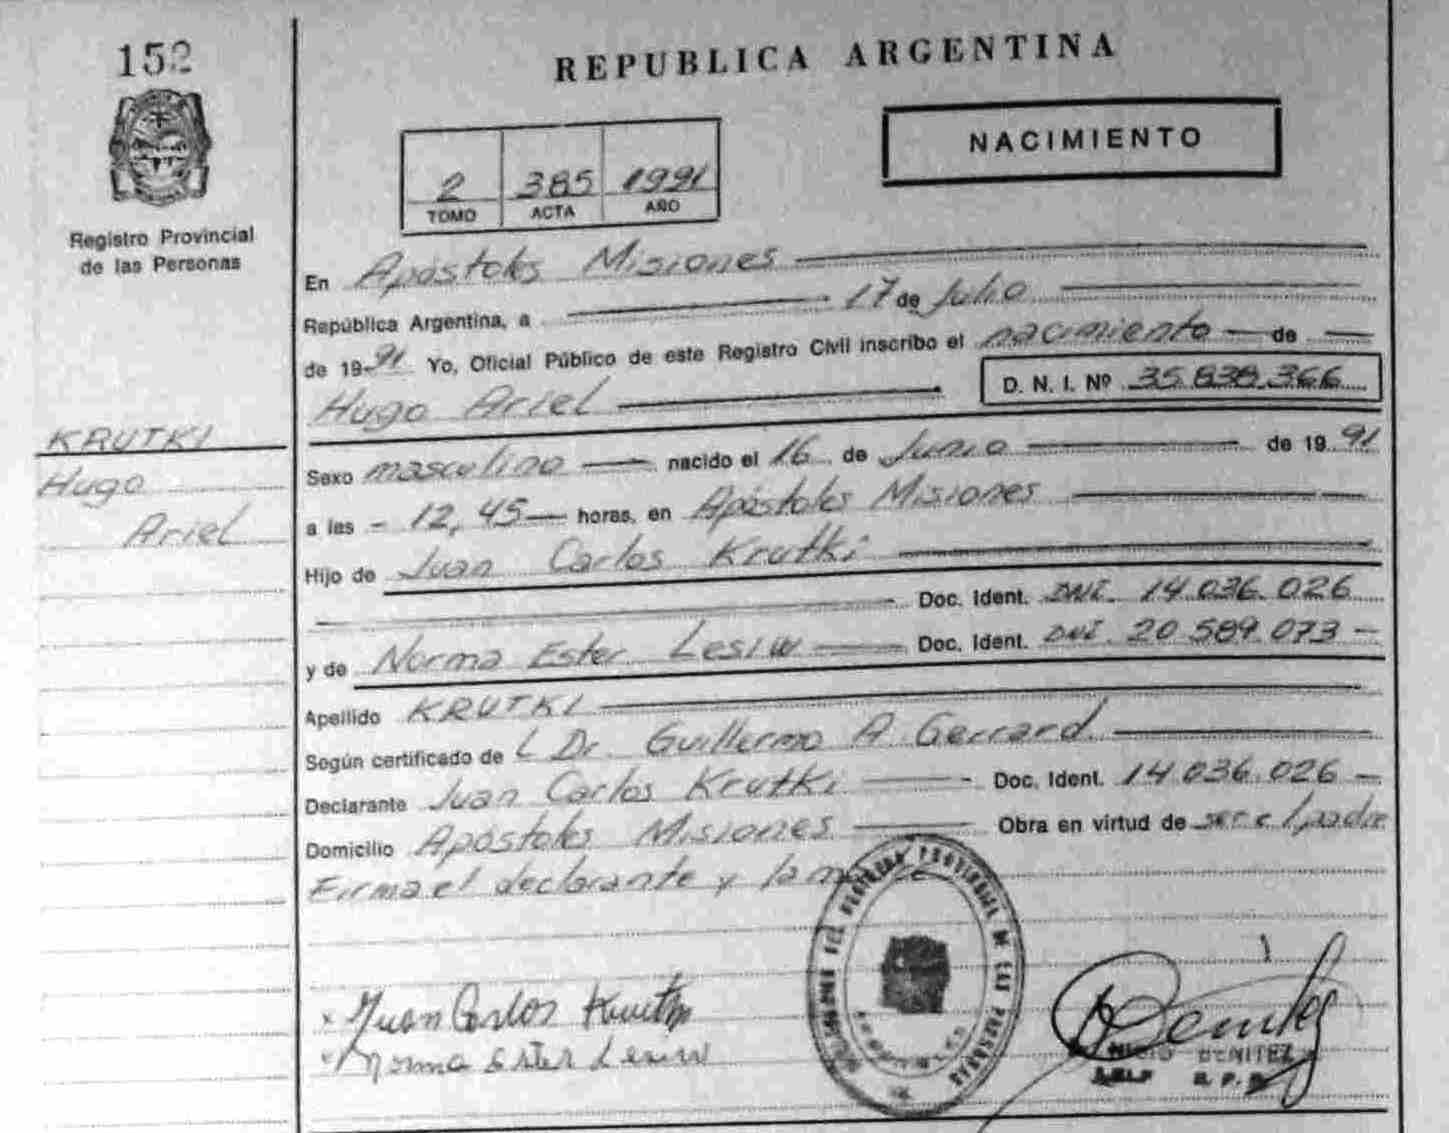 152
REPUBLICA ARGENTINA
NACIMIENTO
2 385 1991
TOMO ACTA AÑO
Registro Provincial
de las Personas
En Apóstoles Misiones
República Argentina, a 17 de Julio
de 1991 Yo, Oficial Público de este Registro Civil inscribo el nacimiento de
Hugo Ariel D. N. I. Nº 35.838.366
KRUTKI
Hugo
Ariel
Sexo masculino nacido el 16 de Junio de 1991
a las - 12,45 horas, en Apóstoles Misiones
Hijo de Juan Carlos Krutki
Doc. Ident. DNI. 14.036.026
y de Norma Ester Lesiw Doc. Ident. DNI 20.589.073 -
Apellido KRUTKI
Según certificado de L Dr. Guillermo A. Gerrard
Declarante Juan Carlos Krutki - Doc. Ident. 14.036.026 -
Domicilio Apóstoles Misiones Obra en virtud de ser el padre
Firma el declarante y la
PROVINCIAL DE LAS PERSONAS
Juan Carlos Krutki
Norma Ester Lesiw
Benitez
BENITEZ